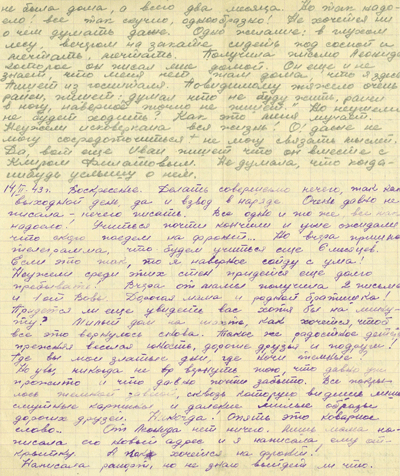 не была дома, а всего два месяца. Но так надо-
ело! все так скучно, однообразно! Не хочется ни
о чем думать даже. Одно желание: в глухом
лесу, вечером на закате сидеть под сосной и
мечтать, мечтать. Получила письмо
которое он писал мне домой. Он еще и не
знает, что меня нет там дома, что я здесь.
Пишет из госпиталя. По-видимому тяжело очень
ранен, пишет: думал что не буду жить, ранен
в ногу, наверное точно не пишет. Но неужели
не будет ходить? Как это меня мучает.
Неужели исковеркана вся жизнь? О! даже не
могу сосредоточиться - не могу связать мыслей.
Да, вот еще Иван пишет что он вместе с
Климом Филатовым. Не думала, что когда-
нибудь услышу о нем.
43г. Воскресенье. Делать совершенно нечего, так как
выходной день, да и взвод в наряде. Очень давно не
писала - нечего писать. Все одно и то же, все так
надоело! Учиться почти кончили и уже ожидали
что скоро поедем на фронт... Но вчера пришла
телеграмма, что будем учиться еще 6 месяцев.
Если это так, то я наверное сойду с ума!
Неужели среди этих стен придется еще долго
пребывать? Вчера от мамы получила 2 письма
и 1 от Вовы. Дорогая мама и родной братишка!
Придется ли еще увидеть вас хотя бы на мину-
ту? Милый дом как хочется, чтоб
все это вернулось снова. Такое же радостное детство
прожить веселая юность, дорогие друзья и подруги!
Где вы мои златые дни, где ночи
Но увы, никогда не вернуть того, что давно уж
прожито и что давно почти забыто. Все покры-
лось сквозь которую видишь лишь
смутные картинки и далекие милые образы
дорогих друзей. Никогда! Опять это коварное
слово. От нет ничего. Лишь мама на-
писала его новый адрес и я написала ему от-
крытку. А как хочется на фронт!
Написала рапорт, но не знаю выйдет ли что.